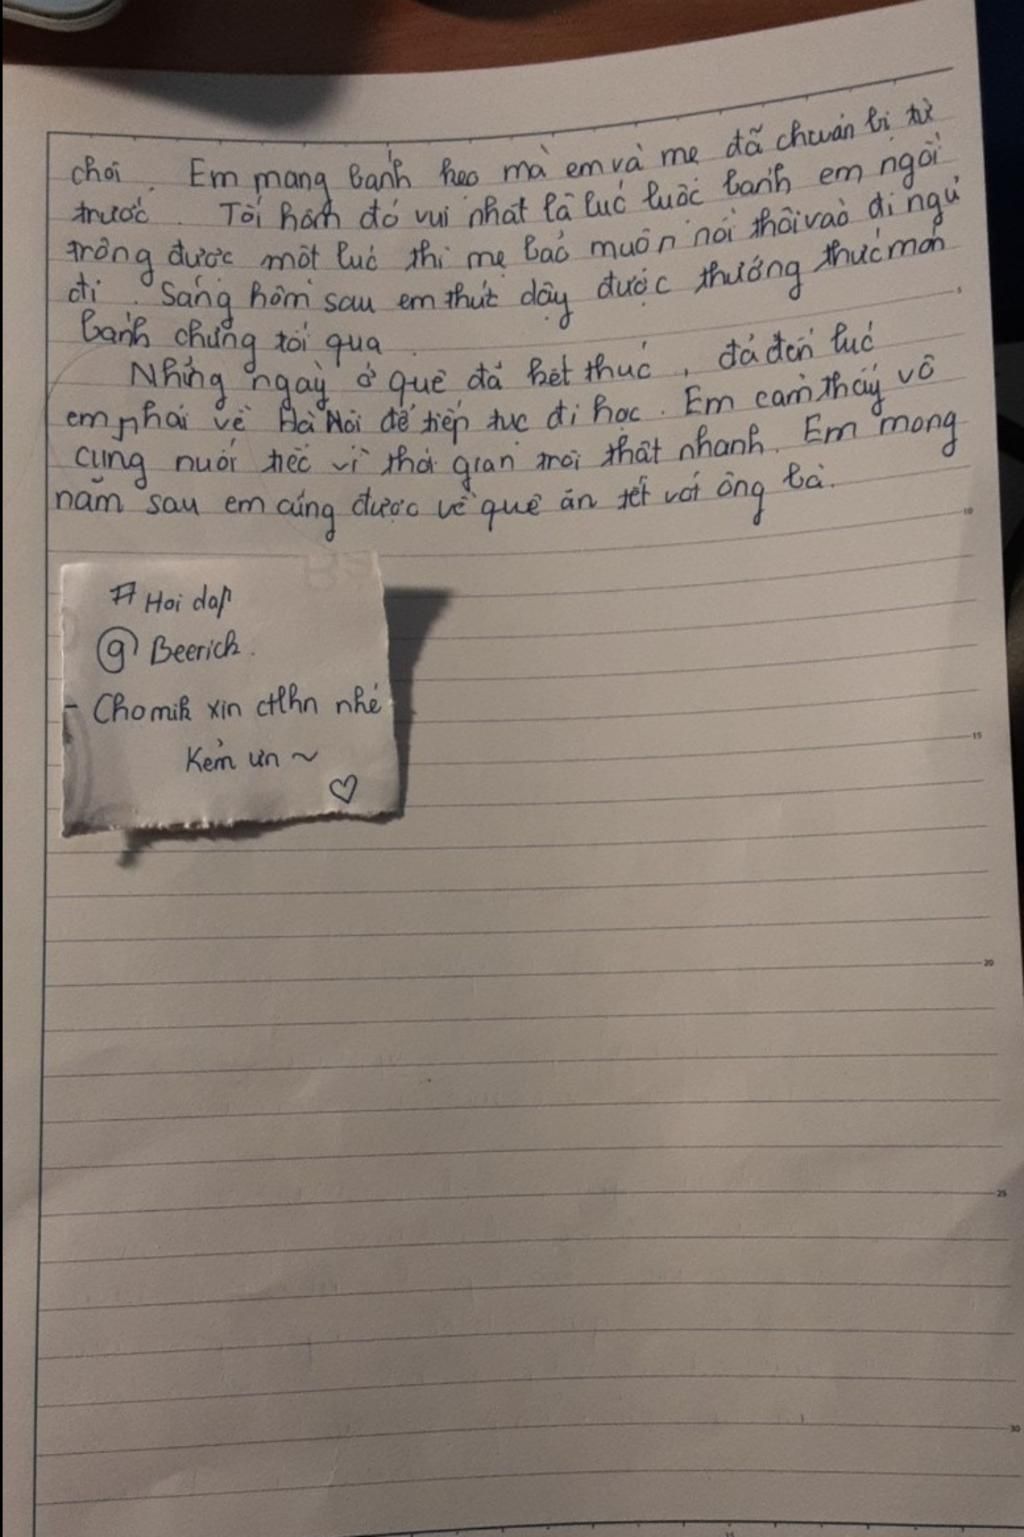 chơi. Em mang bánh kẹo mà em và mẹ đã chuẩn bị từ
trước. Tối hôm đó vui nhất là lúc luộc bánh em ngồi
trông được một lúc thì mẹ bảo muộn nói thôi vào đi ngủ
đi. Sáng hôm sau em thức dậy được thưởng thức món
bánh chưng tối qua.
Những ngày ở quê đã kết thúc, đã đến lúc
em phải về Hà Nội để tiếp tục đi học. Em cảm thấy vô
cùng nuối tiếc vì thời gian trôi thật nhanh. Em mong
năm sau em cũng được về quê ăn tết với ông bà.
# Hoi dap
@ Beerich.
- Cho mik xin ctlhn nhé
Kẻm ưn ~
♡
10
15
20
25
30